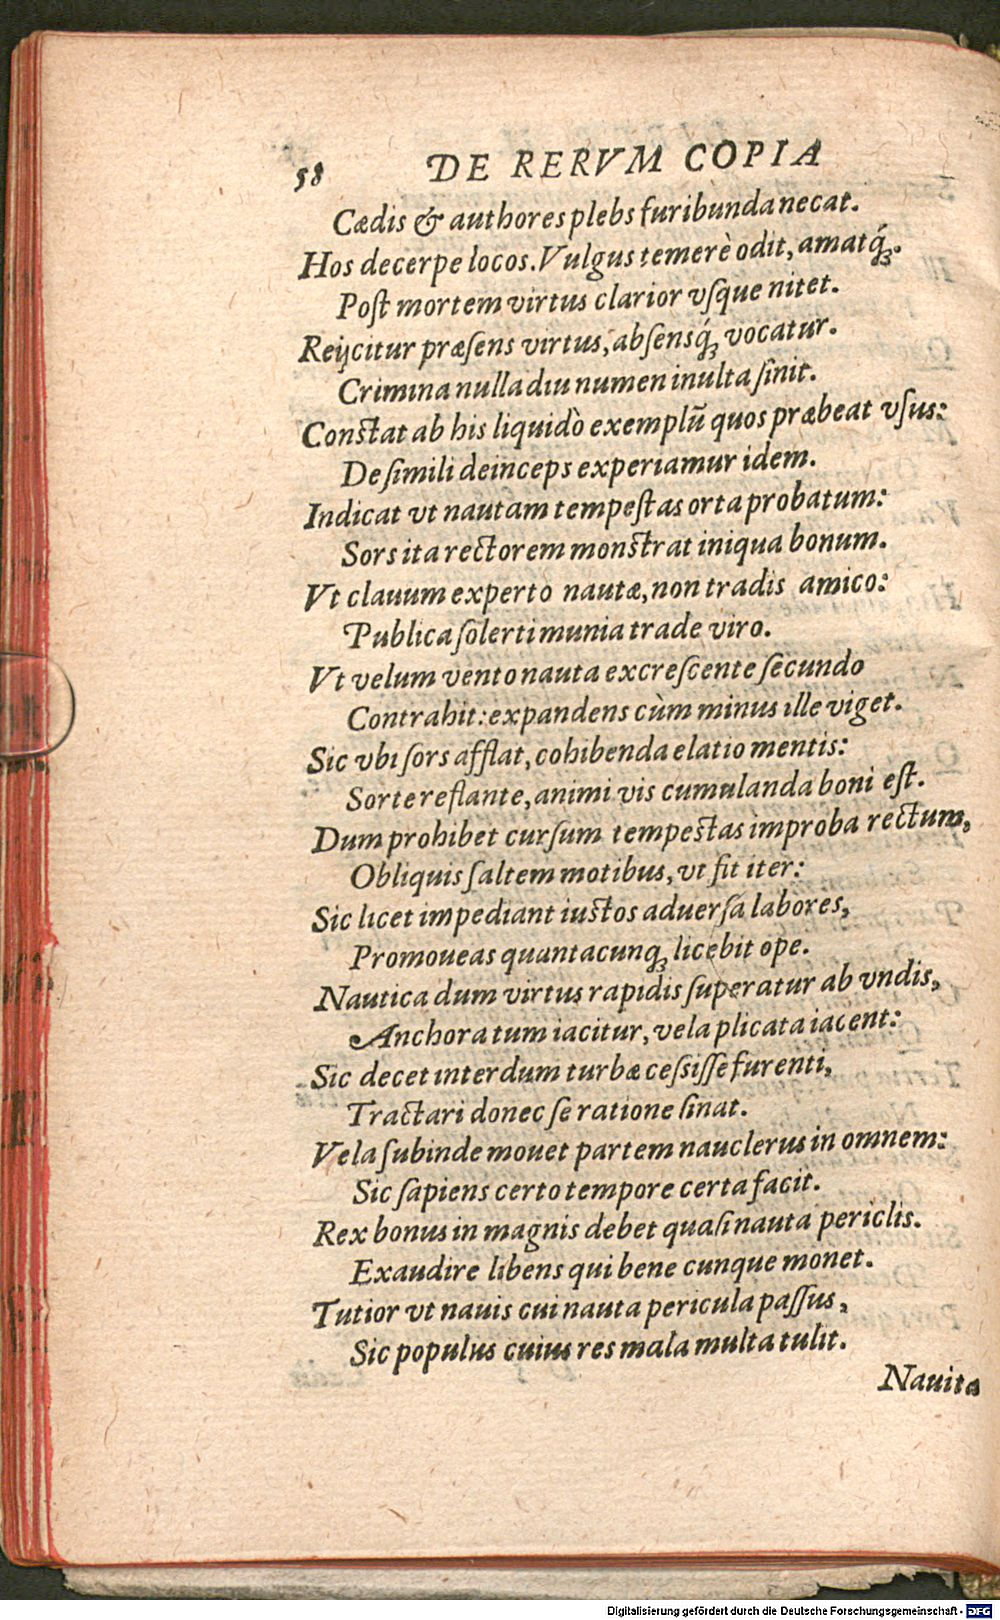 58 DE RERVM COPIA
Cædis & authores plebs furibunda necat.
Hos decerpe locos. Vulgus temerè odit, amatq́;.
Poſt mortem virtus clarior vſque nitet.
Reijcitur præſens virtus, abſensq́; vocatur.
Crimina nulla diu numen inulta ſinit.
Conſtat ab his liquidò exemplũ quos præbeat vſus:
De ſimili deinceps experiamur idem.
Indicat vt nautam tempeſtas orta probatum:
Sors ita rectorem monſtrat iniqua bonum.
Vt clauum experto nautæ, non tradis amico:
Publica ſolerti munia trade viro.
Vt velum vento nauta excreſcente ſecundo
Contrahit: expandens cùm minus ille viget.
Sic vbi ſors afflat, cohibenda elatio mentis:
Sorte reflante, animi vis cumulanda boni eſt.
Dum prohibet curſum tempeſtas improba rectum,
Obliquis ſaltem motibus, vt fit iter:
Sic licet impediant iuſtos aduerſa labores,
Promoueas quantacunq; licebit ope.
Nautica dum virtus rapidis ſuperatur ab vndis,
Anchora tum iacitur, vela plicata iacent:
Sic decet interdum turbæ ceſsiſſe furenti,
Tractari donec ſe ratione ſinat.
Vela ſubinde mouet partem nauclerus in omnem:
Sic ſapiens certo tempore certa facit.
Rex bonus in magnis debet quaſi nauta periclis.
Exaudire libens qui bene cunque monet.
Tutior vt nauis cui nauta pericula paſſus,
Sic populus cuius res mala multa tulit.
Nauita
Digitalisierung gefördert durch die Deutsche Forschungsgemeinschaft - DFG